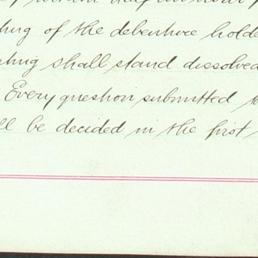 ing of the debenture holde
eting shall stand dissolved
Every question submitted to
ll be decided in the first